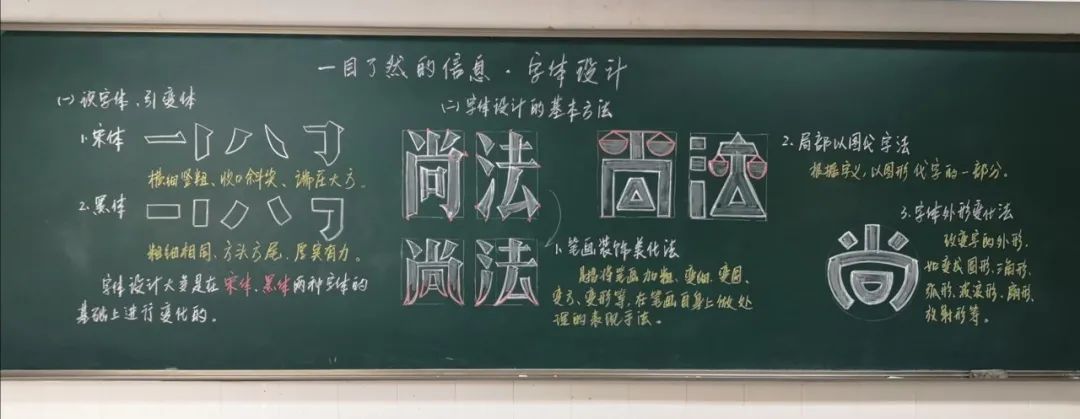 一目了然的信息·字体设计
(一)识字体、引变体
1.宋体
横细竖粗、收口斜尖、端庄大方。
2.黑体
粗细相同、方头方尾、厚实有力。
字体设计大多是在宋体、黑体两种字体的
基础上进行变化的。
(二)字体设计的基本方法
尚法
尚法
尚法
1.笔画装饰美化法
是指将笔画加粗、变细、变圆、
变方、变形等,在笔画自身上做处
理的表现手法。
2.局部以图代字法
根据字义,以图形代字的一部分。
3.字体外形变化法
改变字的外形,
如变成圆形、三角形、
弧形、波浪形、扇形、
放射形等。
尚